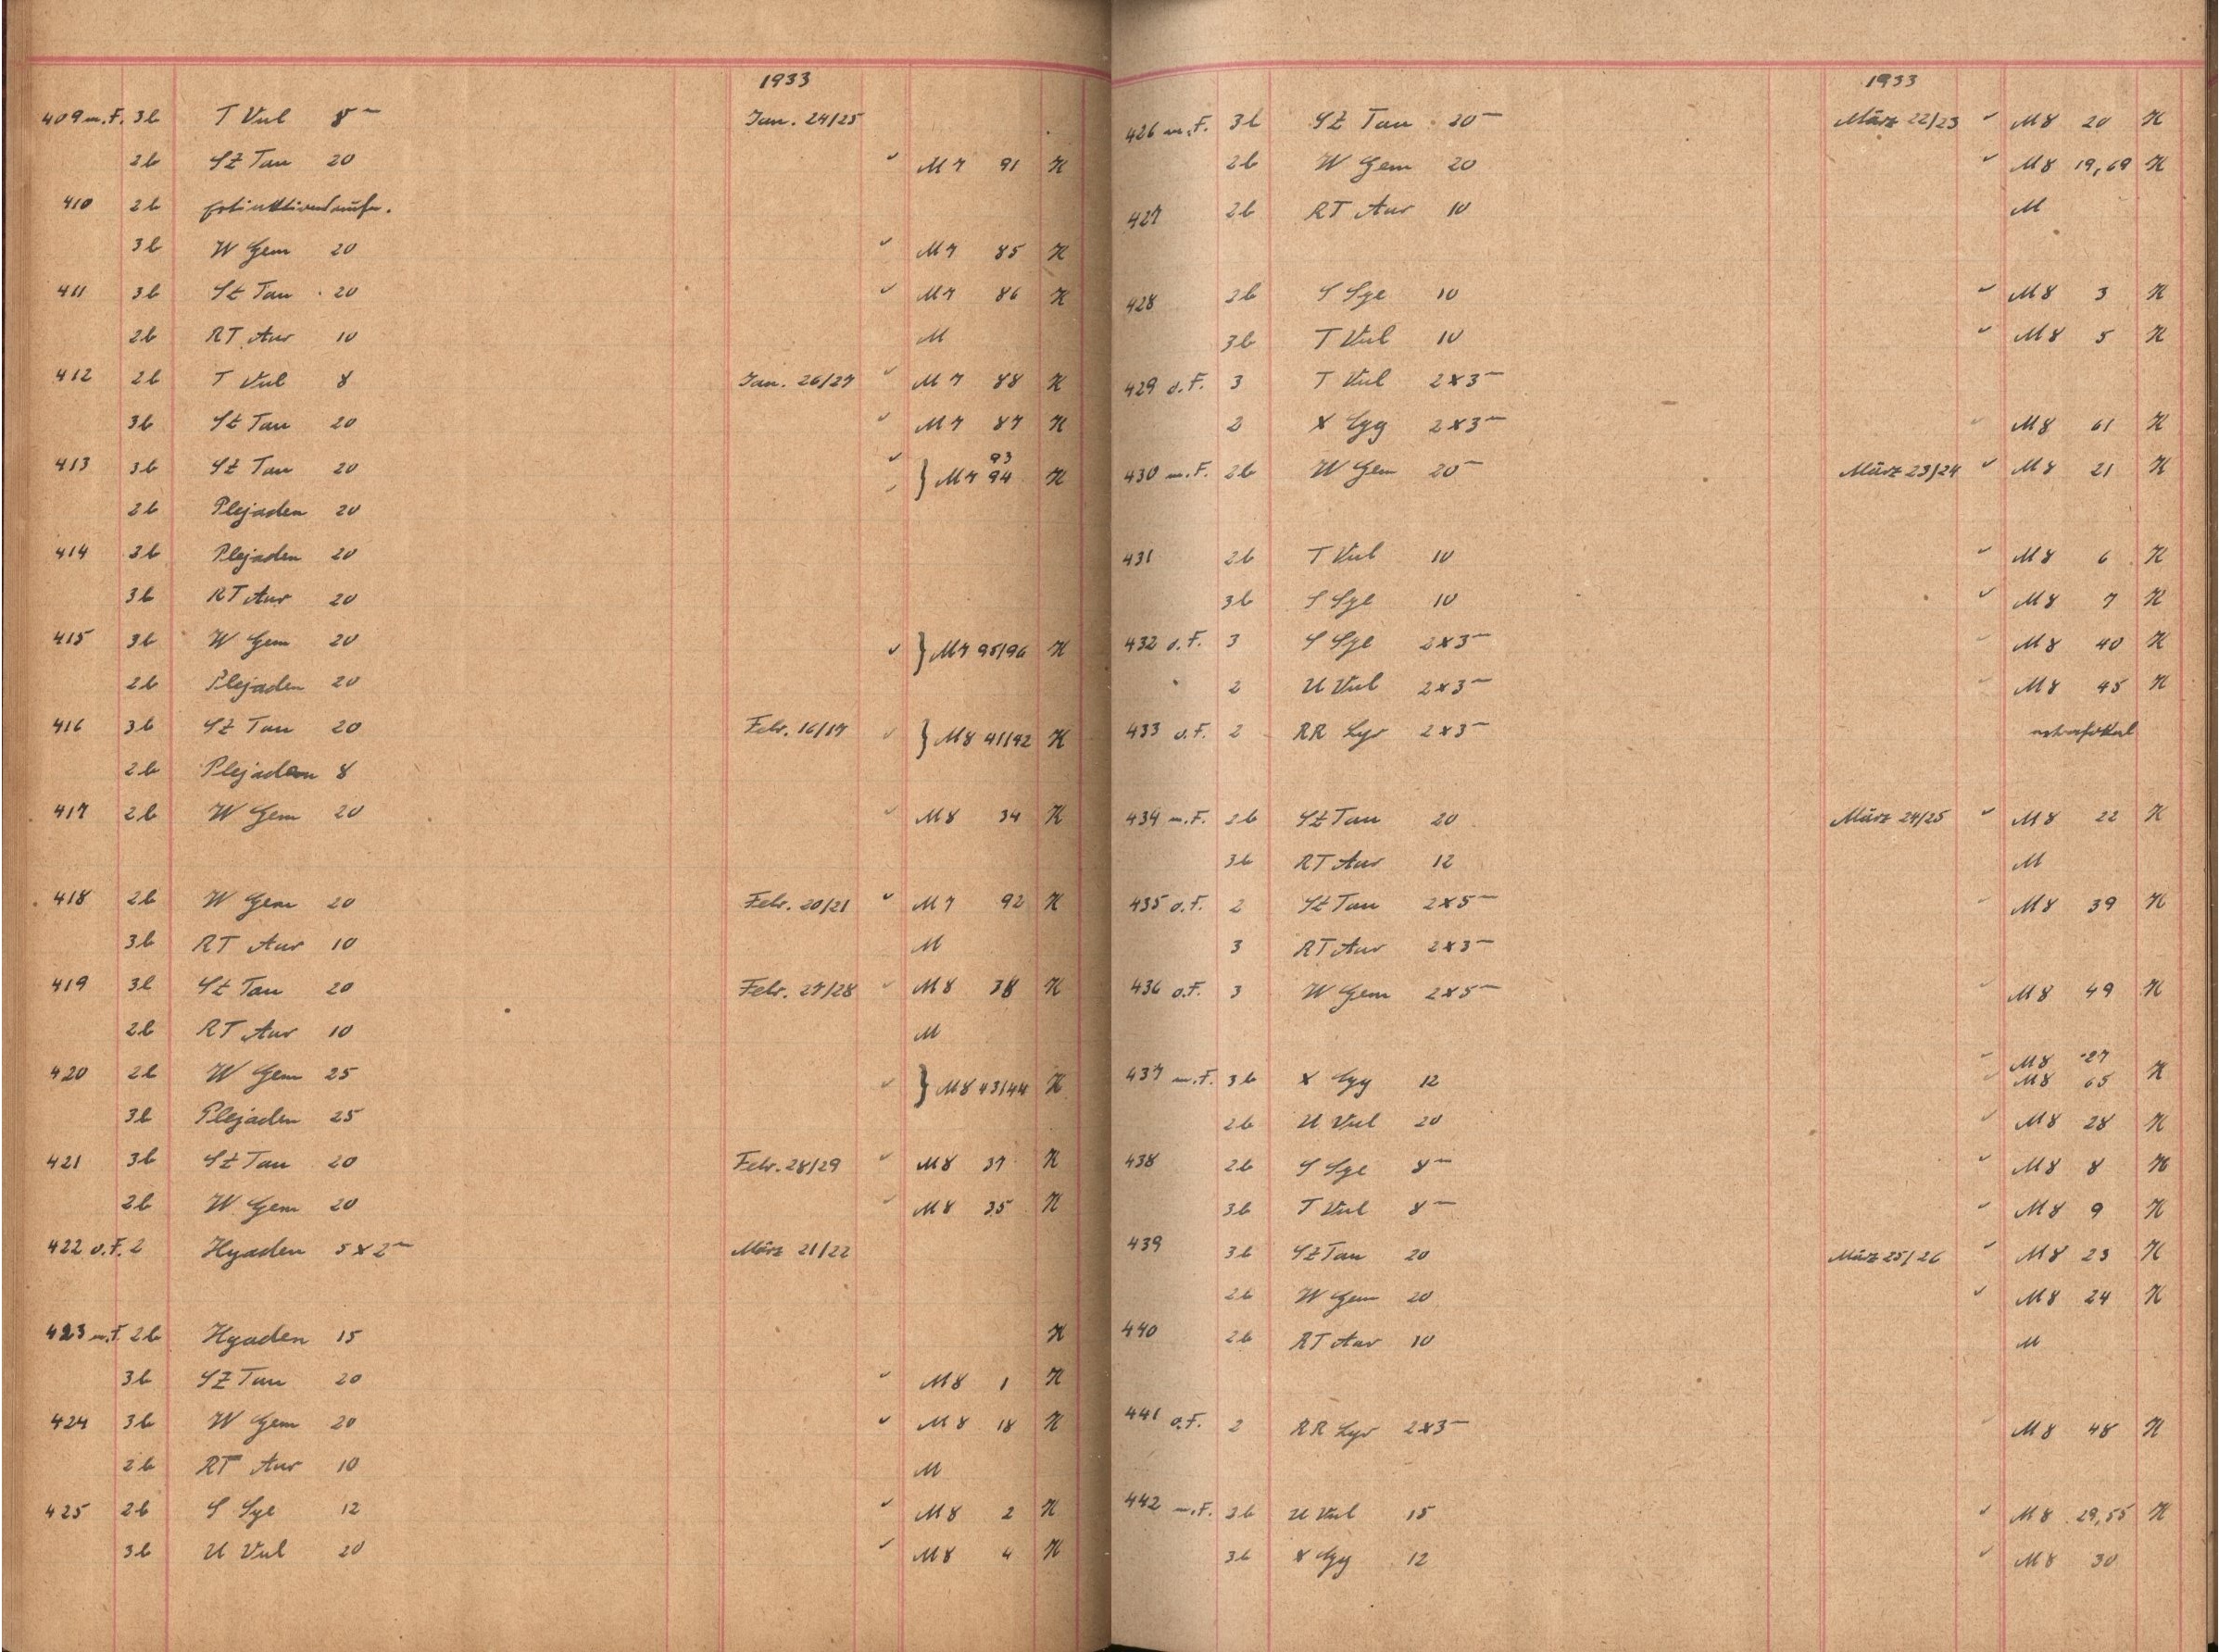 1933
409 m.F. 3b T Vul 8ᵐ Jan. 24/25
2b SZ Tau 20 ✓ M 7 91 K
410 2b Extinktionsaufn.
3b W Gem 20 ✓ M 7 85 K
411 3b SZ Tau 20 ✓ M 7 86 K
2b RT Aur 10 M
412 2b T Vul 8 Jan. 26/27 ✓ M 7 88 K
3b SZ Tau 20 ✓ M 7 87 K
413 3b SZ Tau 20 ✓ } M 7 93 94 K
2b Plejaden 20 ✓
414 3b Plejaden 20
3b RT Aur 20
415 3b W Gem 20 ✓ } M 7 95/96 K
2b Plejaden 20
416 3b SZ Tau 20 Febr. 16/17 ✓ } M 8 41/42 K
2b Plejaden 8
417 2b W Gem 20 ✓ M 8 34 K
418 2b W Gem 20 Febr. 20/21 ✓ M 7 92 K
3b RT Aur 10 M
419 3b SZ Tau 20 Febr. 27/28 ✓ M 8 38 K
2b RT Aur 10 M
420 2b W Gem 25 ✓ } M 8 43/44 K
3b Plejaden 25
421 3b SZ Tau 20 Febr. 28/29 ✓ M 8 37 K
2b W Gem 20 ✓ M 8 35 K
422 o.F. 2 Hyaden 5x2ᵐ März 21/22
423 m.F. 2b Hyaden 15 K
3b SZ Tau 20 ✓ M 8 1 K
424 3b W Gem 20 ✓ M 8 18 K
2b RT Aur 10 M
425 2b S Sge 12 ✓ M 8 2 K
3b U Vul 20 ✓ M 8 4 K
1933
426 m.F. 3b SZ Tau 20ᵐ März 22/23 ✓ M 8 20 K
2b W Gem 20 ✓ M 8 19,69 K
427 2b RT Aur 10 M
428 2b S Sge 10 ✓ M 8 3 K
3b T Vul 10 ✓ M 8 5 K
429 o.F. 3 T Vul 2x3ᵐ
2 X Cyg 2x3ᵐ ✓ M 8 61 K
430 m.F. 2b W Gem 20ᵐ März 23/24 ✓ M 8 21 K
431 2b T Vul 10 ✓ M 8 6 K
3b S Sge 10 ✓ M 8 7 K
432 o.F. 3 S Sge 2x3ᵐ ✓ M 8 40 K
2 U Vul 2x3ᵐ ✓ M 8 45 K
433 o.F. 2 RR Lyr 2x3ᵐ extrafokal
434 m.F. 2b SZ Tau 20 März 24/25 ✓ M 8 22 K
3b RT Aur 12 M
435 o.F. 2 SZ Tau 2x5ᵐ ✓ M 8 39 K
3 RT Aur 2x3ᵐ
436 o.F. 3 W Gem 2x5ᵐ ✓ M 8 49 K
437 m.F. 3b X Cyg 12 ✓ M 8 27 M 8 65 K
2b U Vul 20 ✓ M 8 28 K
438 2b S Sge 8ᵐ ✓ M 8 8 K
3b T Vul 8ᵐ ✓ M 8 9 K
439 3b SZ Tau 20 März 25/26 ✓ M 8 23 K
2b W Gem 20 ✓ M 8 24 K
440 2b RT Aur 10 M
441 o.F. 2 RR Lyr 2x3ᵐ ✓ M 8 48 K
442 m.F. 2b U Vul 15 ✓ M 8 29,55 K
3b X Cyg 12 ✓ M 8 30